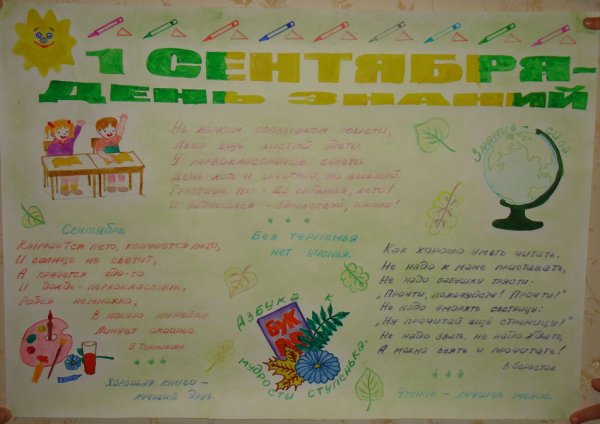 1 СЕНТЯБРЯ-
ДЕНЬ ЗНАНИЙ
Не жарким солнышком согреты,
Леса ещё листвой одеты.
У первоклассников букеты.
День хоть и грустный, но весёлый,
Грустишь ты: - До свиданья, лето!
И радуешься: - Здравствуй, школа!
Знание - сила
Сентябрь
Кончается лето, кончается лето,
И солнце не светит,
А прячется где-то.
И дождь - первоклассник,
Робея немножко,
В косую линейку
Линует окошко.
И. Токмакова
Без терпенья
нет ученья.
Азбука к
мудрости ступенька.
БУК
Как хорошо уметь читать.
Не надо к маме приставать,
Не надо бабушку трясти:
"Прочти, пожалуйста! Прочти!"
Не надо умолять сестрицу:
"Ну прочитай ещё страницу!"
Не надо звать, не надо ждать,
А можно взять и прочитать!
В. Берестов
Хорошая книга -
лучший друг
Чтение - лучшее учение.